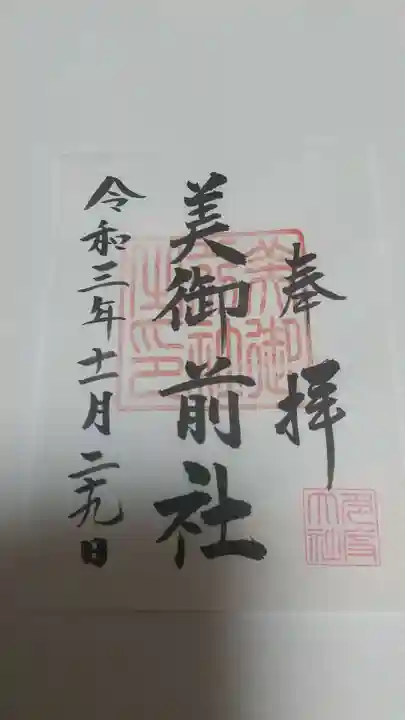 奉拝
美御前社
令和三年十一月二十九日